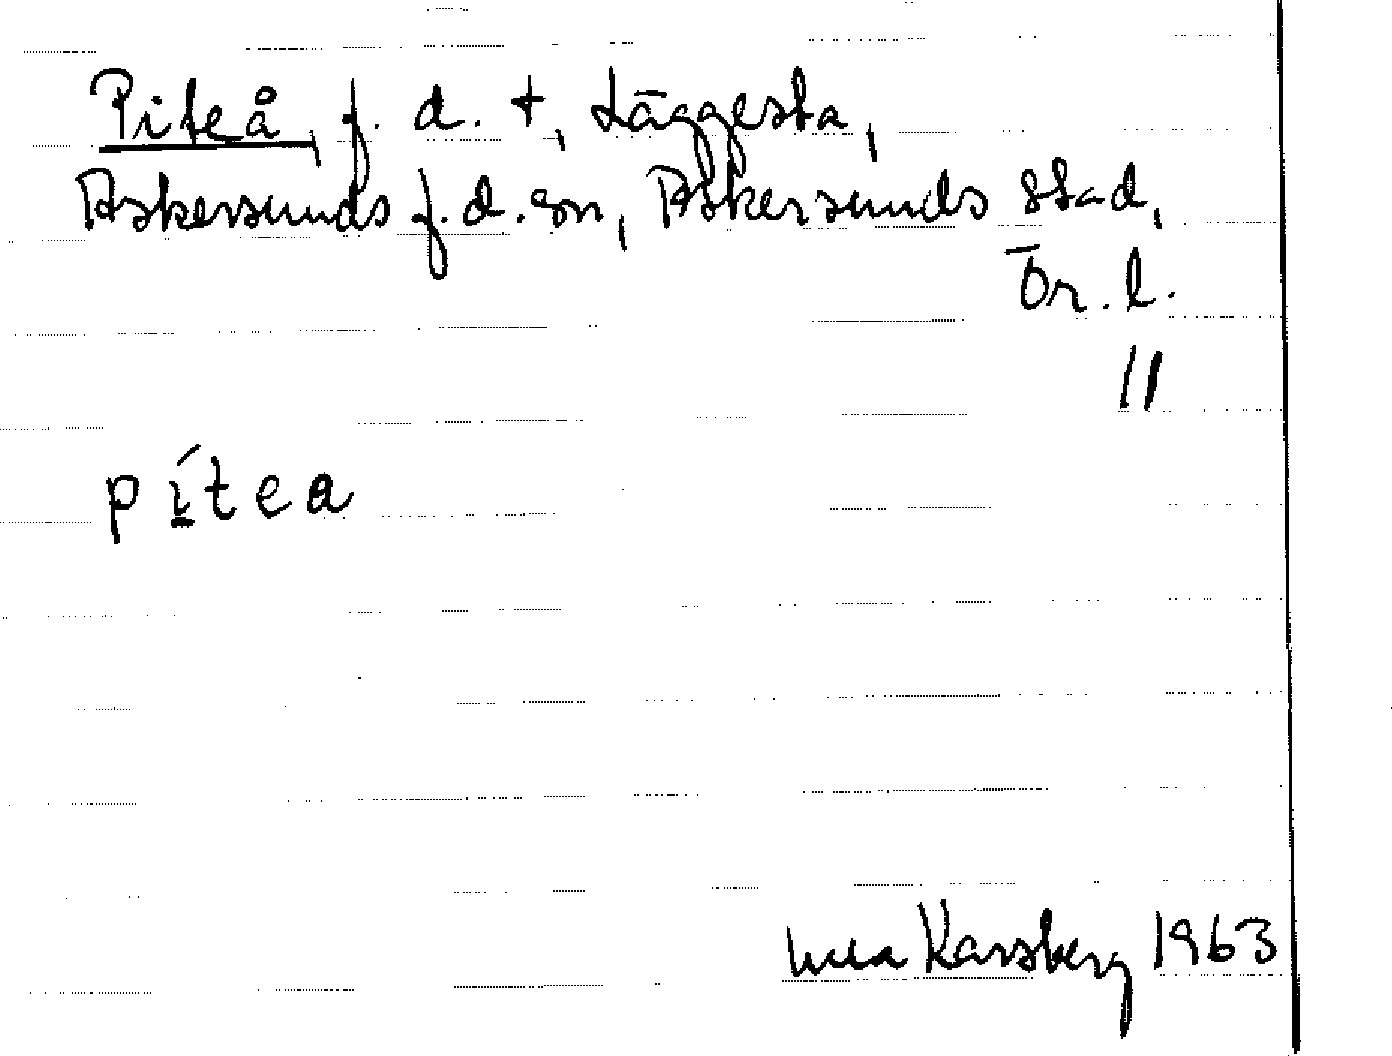 Piteå, f. d. t, Läggesta,
Askersunds f. d. sn, Askersunds stad,
Ör. l.
11
pítea
Karsberg 1963